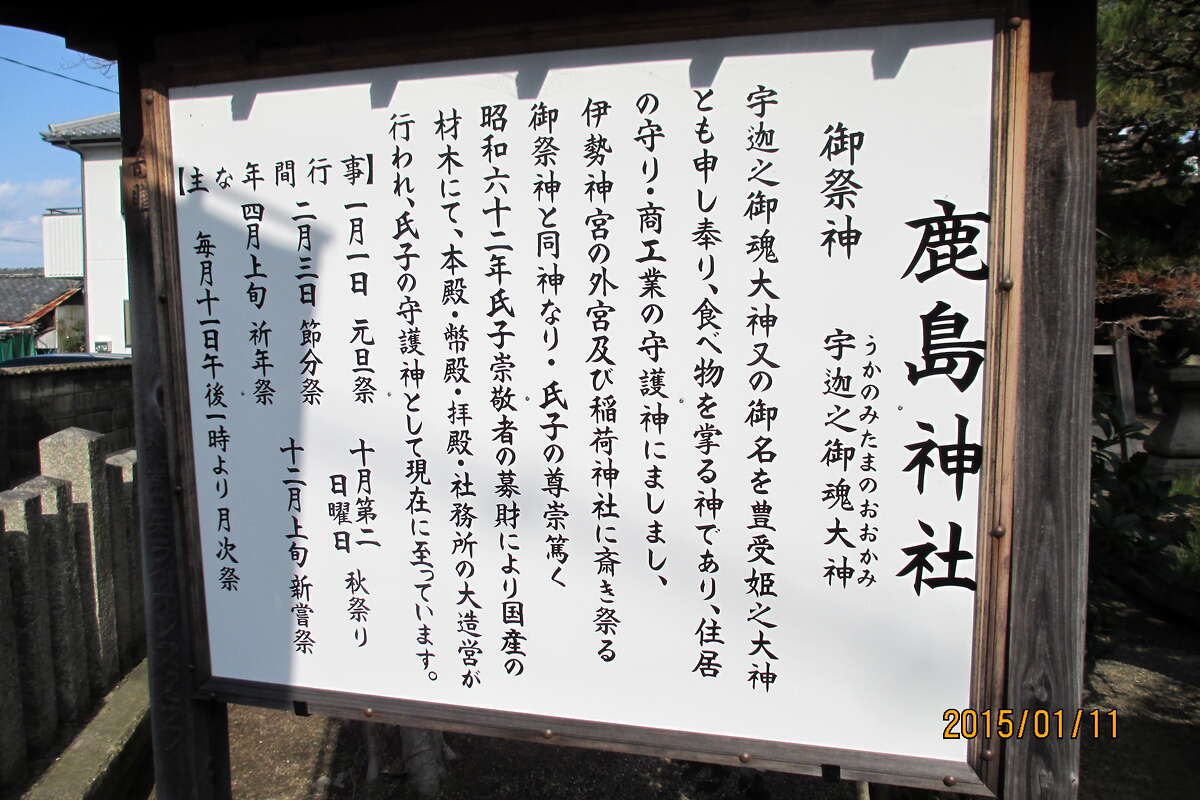 鹿島神社
御祭神 宇迦之御魂大神
うかのみたまのおおかみ
宇迦之御魂大神又の御名を豊受姫之大神
とも申し奉り、食べ物を掌る神であり、住居
の守り・商工業の守護神にましまし、
伊勢神宮の外宮及び稲荷神社に斎き祭る
御祭神と同神なり・氏子の尊崇篤く
昭和六十二年氏子崇敬者の募財により国産の
材木にて、本殿・幣殿・拝殿・社務所の大造営が
行われ、氏子の守護神として現在に至っています。
【主な年間行事】
一月一日 元旦祭 十月第二日曜日 秋祭り
二月三日 節分祭 十二月上旬 新嘗祭
四月上旬 祈年祭
毎月十一日午後一時より月次祭
2015/01/11